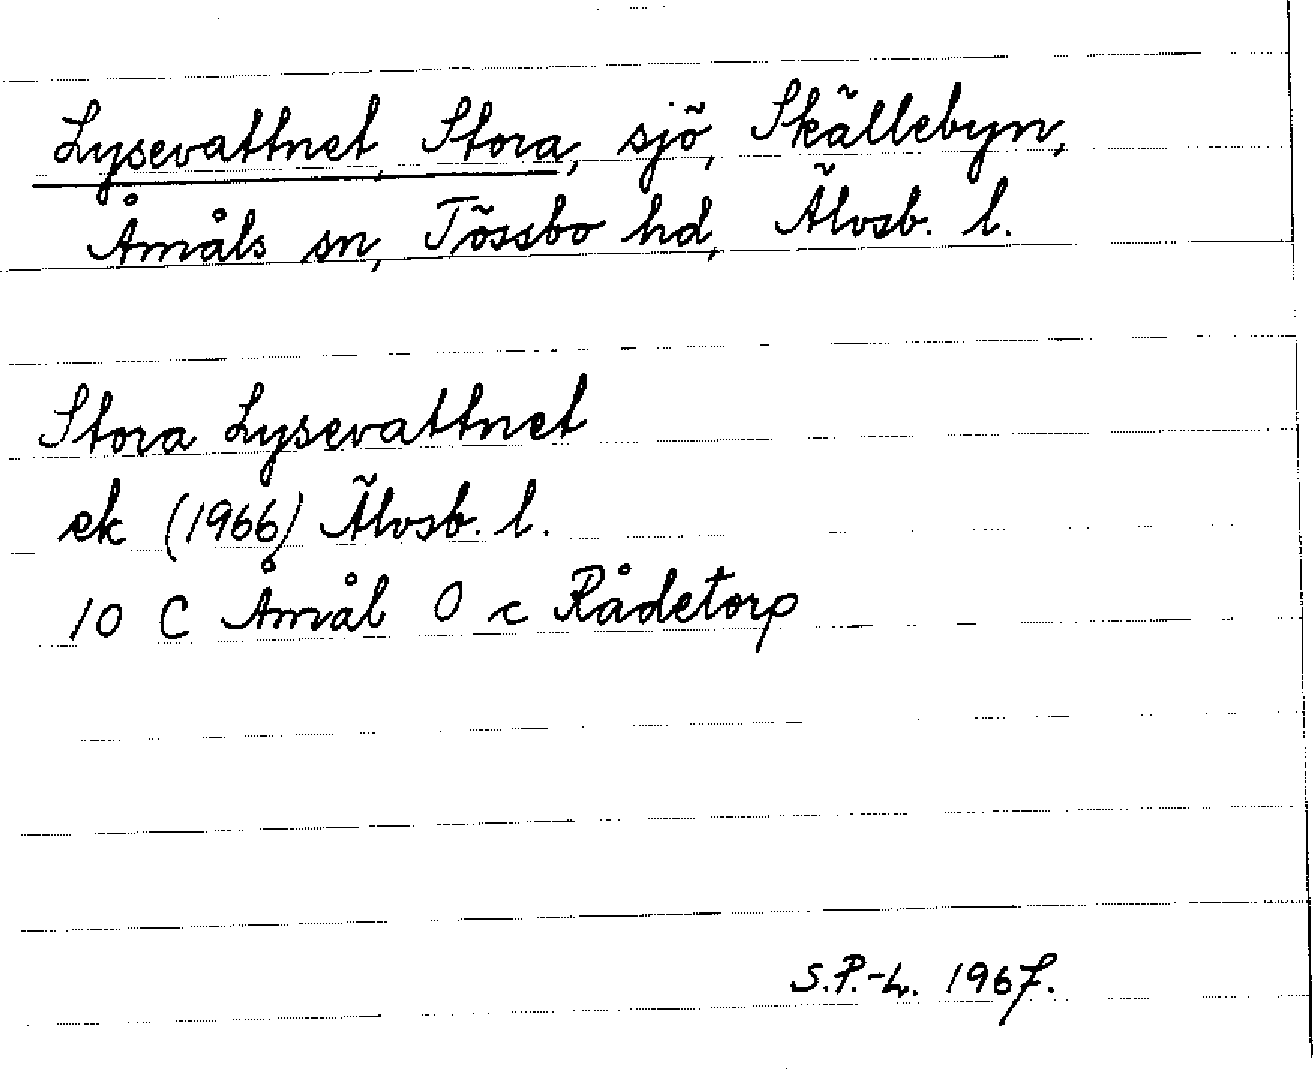 Lysevattnet, Stora, sjö, Skällebyn,
Åmåls sn, Tössbo hd, Älvsb. l.
Stora Lysevattnet
ek (1966) Älvsb. l.
10 C Åmål 0 c Rådetorp
S.P.-L. 1967.